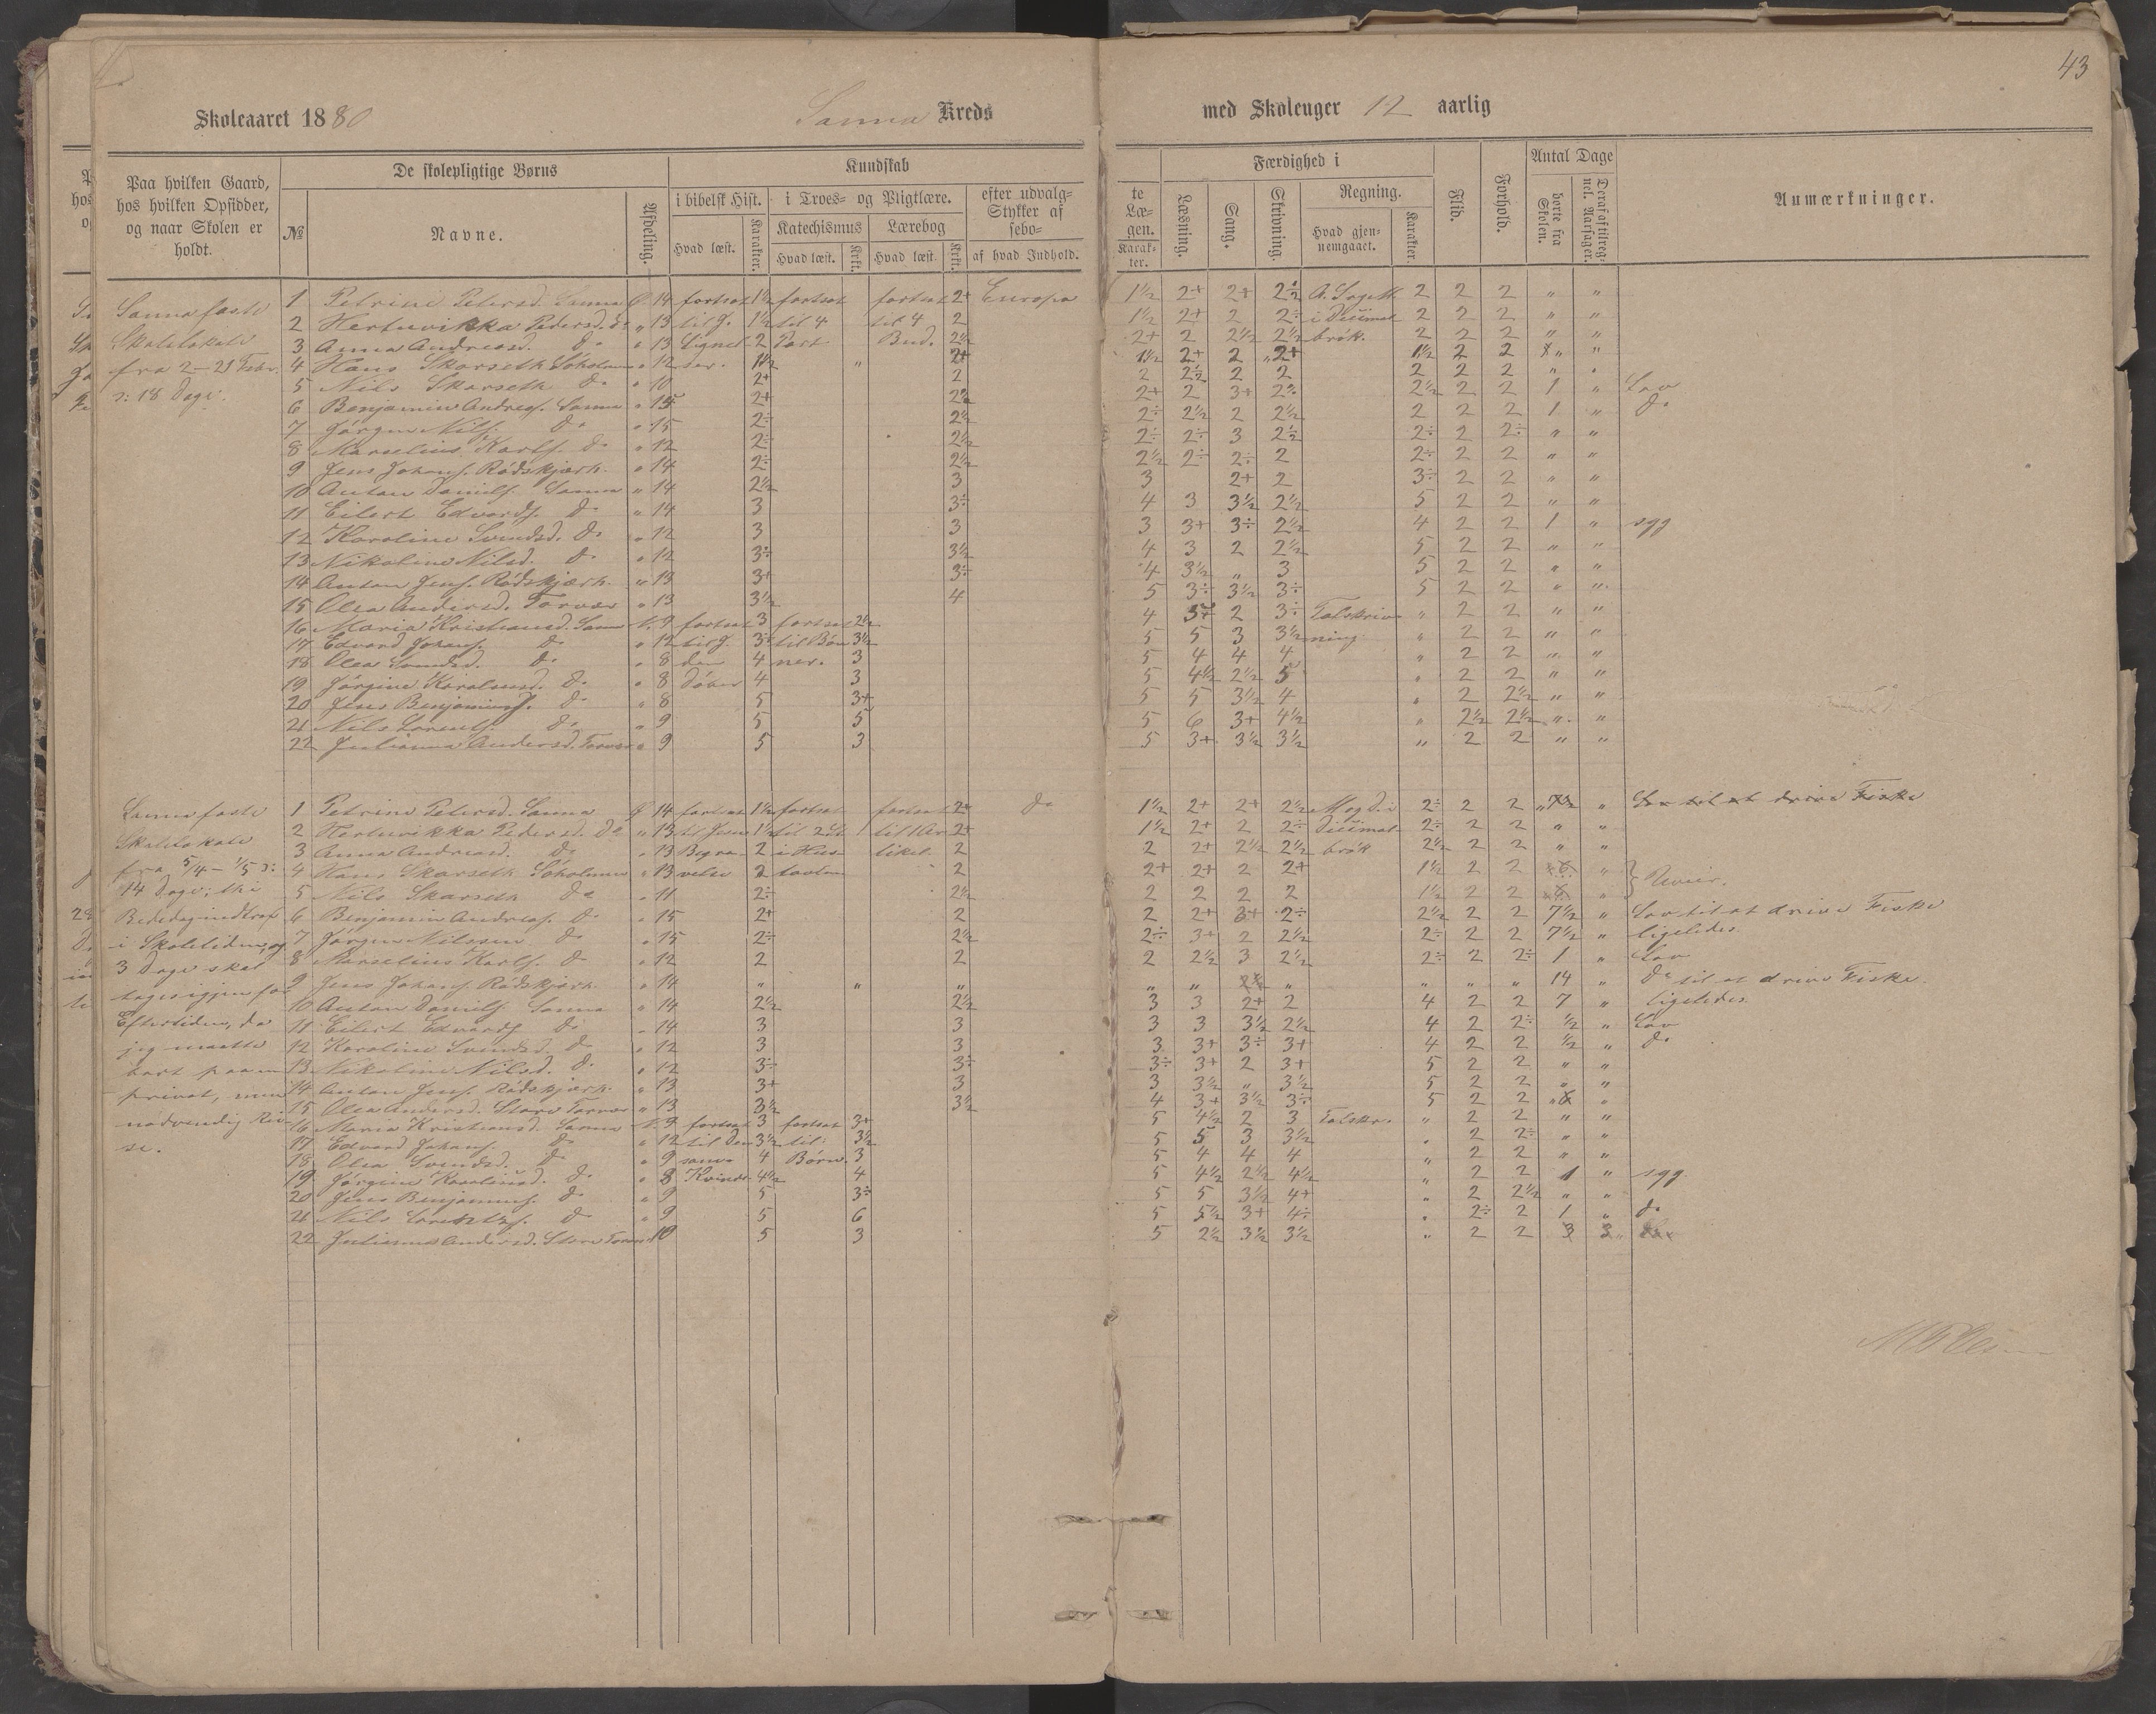 43
Skoleaaret 1880 Sanna Kreds med Skoleuger 12 aarlig
Paa hvilken Gaard, hos hvilken Opsidder, og naar Skolen er holdt.
De skolepligtige Børns
№ Navne. Afdeling.
Kundskab
i bibelsk Hist. i Troes- og Pligtlære. efter udvalgte Stykker af Læsebogen.
Hvad læst. Karakter. Katechismus Hvad læst. Krkt. Lærebog Hvad læst. Krkt. af hvad Indhold. Karakter.
Færdighed i
Læsning. Sang. Skrivning. Regning. Hvad gjennemgaaet. Karakter.
Flid. Forhold.
Antal Dage
borte fra Skolen. Deraf af tilregnel. Aarsager.
Anmærkninger.
Sanna faste
Skolelokale
fra 2–21 Febr.
ɔ: 18 Dage.
1 Petrine Petersd. Sanna Ø 14 fortsat 1½ fortsat fortsat 2+ Europa 1½ 2+ 2+ 2½ 2 2 2 " "
2 Hertuvikka Pedersd. do " 13 til J. 1½ til 4 til 4 2 1½ 2+ 2 2÷ i Decimal 2 2 2 " "
3 Anna Andreasd. do " 13 Lignel 2 Part Bud. 2½ 2+ 2 2½ 2½ brök. 2 2 2 " "
4 Hans Skarseth Söholmen " 12 ser. 1½ " 2+ 1½ 2+ 2 2+ 1½ 2 2 "
5 Nils Skarseth do " 10 2+ 2 2 2½ 2 2 2 2 2 "
6 Benjamin Andreas. Sanna " 15 2+ 2½ 2+ 2 3+ 2÷ 2½ 2 2 1 " Lov
7 Jörgen Nils. do " 15 2÷ 2½ 2÷ 2½ 2 2½ 2 2 2 1 " do
8 Marselius Karls. do " 12 2÷ 2½ 2÷ 2÷ 3 2½ 2÷ 2 2÷ " "
9 Jens Johans. Rödskjærh. " 14 2÷ 2½ 2½ 2÷ 2÷ 2 2÷ 2 2 " "
10 Anton Daniels. Sanna " 14 2½ 3 3 2+ 2 3÷ 2 2 " "
11 Eilert Edvards. do " 14 3 3÷ 4 3 3½ 2½ 5 2 2 " "
12 Karoline Svendsd. do " 12 3 3 3 3+ 3÷ 2½ 4 2 2 1 " sgg
13 Nikoline Nilsd. do " 12 3÷ 3½ 4 3 2 2½ 5 2 2 " "
14 Anton Jens. Rödskjærh. " 13 3+ 3÷ 4 3½ " 3 5 2 2 " "
15 Olea Andersd. Torvær " 13 3½ 4 5 3÷ 3½ 3÷ 5 2 2 " "
16 Maria Kristiansd. Sanna N. 9 fortsat 3 fortsat 2½ 4 3+ 2 3÷ Talskriv " 2 2 " "
17 Edvard Johans. do " 12 til J. 3÷ til Bön 3½ 5 5 3 3½ ning. " 2 2 " "
18 Olea Svendsd. do " 8 den 4 ner. 3 5 4 4 4 " 2 2 " "
19 Jörgine Karolusd. do " 8 Döber 4 3 5 4½ 2½ 5 " 2 2 " "
20 Jens Benjamins. do " 8 5 3+ 5 5 3½ 4 " 2 2½ " "
21 Nils Lorents. do " 9 5 5 5 6 3+ 4½ " 2½ 2½ " "
22 Julianna Andersd. Torvær " 9 5 3 5 3+ 3½ 3½ " 2 2 " "
Sanna faste
Skolelokale
fra 5/4 – 1/5 ɔ:
14 Dage; thi
Bededag indtraf
i Skoletiden, og
3 Dage skal
tages igjen for
Eftertiden, da
jeg maatte
bort paa en
privat, men
nødvendig Rei-
se.
1 Petrine Petersd. Sanna Ø 14 fortsat 1½ fortsat fortsat 2+ do 1½ 2+ 2+ 2½ 2÷ 2 2 " " Lov til at drive Fiske
2 Hertuvikka Pedersd. do " 13 til Jesu 1½ 2+ 1½ 2+ 2 2÷ Decimal 2÷ 2 2 " "
3 Anna Andreasd. do " 13 Begra- 2 i Hus- 2 2 2+ 2½ 2½ brök 2½ 2 2 " "
4 Hans Skarseth Söholmen " 13 velse 2 tavlen 2 2+ 2+ 2 2+ 1½ 2 2 "
5 Nils Skarseth do " 11 2÷ 2½ 2 2 2 2 1½ 2 2 " Uveir.
6 Benjamin Andreas. do " 15 2+ 2 2 2+ 3+ 2÷ 2½ 2 2 7½ " Lov til at drive Fiske
7 Jörgen Nilssen do " 15 2÷ 2½ 2÷ 3+ 2 2½ 2÷ 2 2 7½ " ligeledes
8 Marselius Karls. do " 12 2 2 2 2½ 3 2½ 2÷ 2 2÷ 1 " Lov
9 Jens Johans. Rödskjærh. " 14 " " " " " " " " " 14 " do til at drive Fiske.
10 Anton Daniels. Sanna " 14 2½ 2½ 3 3 2+ 2 4 2 2 7 " ligeledes
11 Eilert Edvards. do " 14 3 3 3 3 3½ 2½ 4 2 2÷ ½ " Lov
12 Karoline Svendsd. do " 12 3 3 3 3+ 3÷ 3+ 4 2 2 ½ " do
13 Nikoline Nilsd. do " 12 3÷ 3÷ 3÷ 3+ 2 3+ 5 2 2 " "
14 Anton Jens. Rödskjærh. " 13 3+ 3 3 3½ " 3½ 5 2 2 " "
15 Olea Andersd. Store Torvær " 13 3½ 3½ 4 3+ 3½ 3÷ 5 2 2 "
16 Maria Kristiansd. Sanna N. 9 fortsat 3 fortsat 3+ 5 4½ 2 3 Talskr. " 2 2 " "
17 Edvard Johans. do " 12 til Den 3½ til 3½ 5 5 3 3½ " 2 2÷ " "
18 Olea Svendsd. do " 9 4 Börn. 3 5 4 4 4 " 2 2 " "
19 Jörgine Karolusd. do " 8 Kvinde 4½ 4 5 4½ 2½ 4½ " 2 2 1 " sgg
20 Jens Benjamins. do " 9 5 3÷ 5 5 3½ 4+ " 2 2½ " "
21 Nils Lorents. do " 9 5 6 5 5½ 3+ 4÷ " 2÷ 2 1 " do
22 Julianna Andersd. Store Torvær " 10 5 3 5 2½ 3½ 3½ " 2 2 3 3